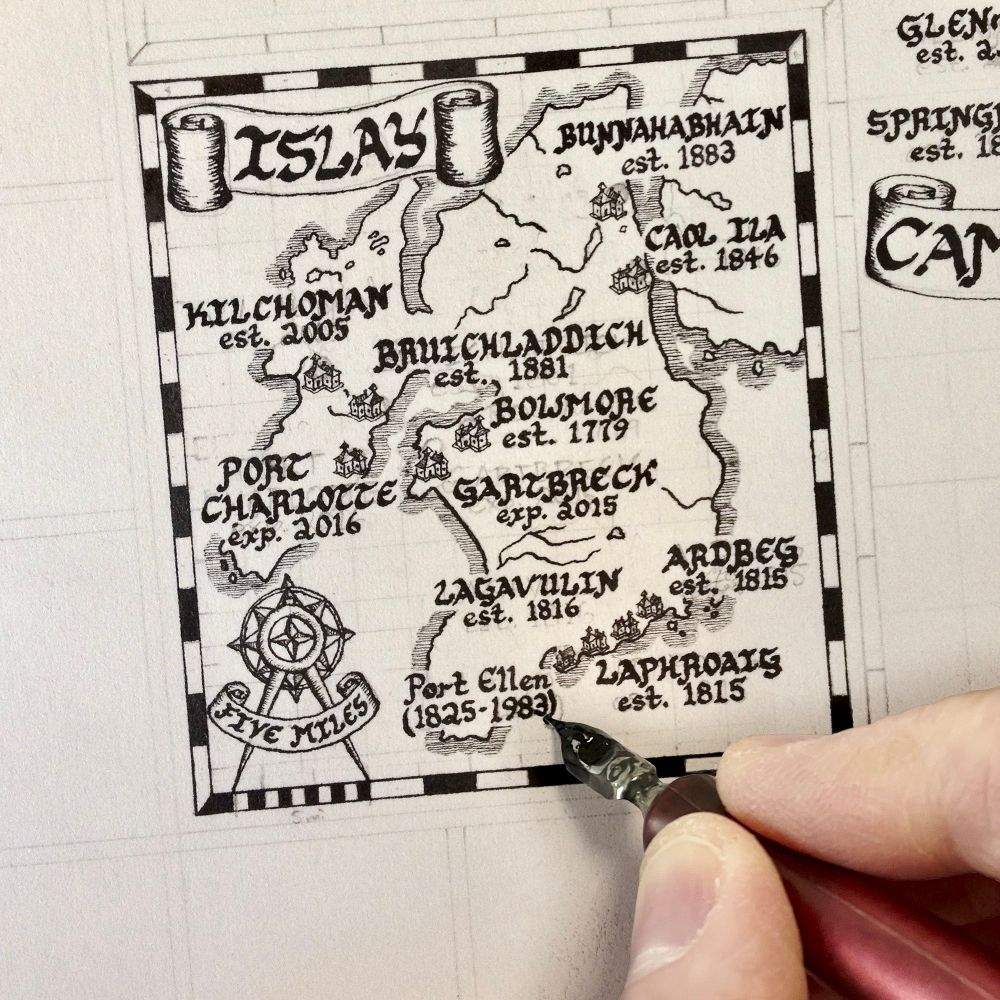 ISLAY
BUNNAHABHAIN
est. 1883
CAOL ILA
est. 1846
KILCHOMAN
est. 2005
BRUICHLADDICH
est. 1881
BOWMORE
est. 1779
PORT
CHARLOTTE
exp. 2016
GARTBRECK
exp. 2015
ARDBEG
est. 1815
LAGAVULIN
est. 1816
LAPHROAIG
est. 1815
Port Ellen
(1825-1983)
FIVE MILES
5 mi
est.
est.